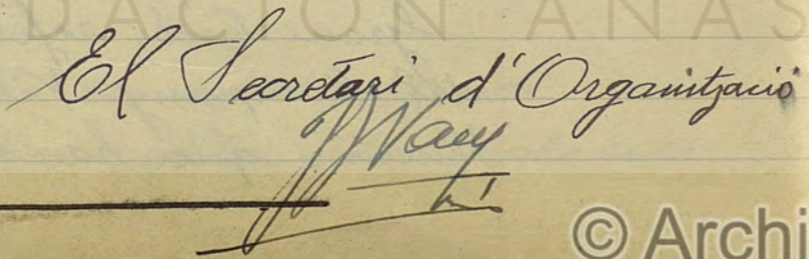 DACIÓN ANAS
El Secretari d'Organització
© Archi